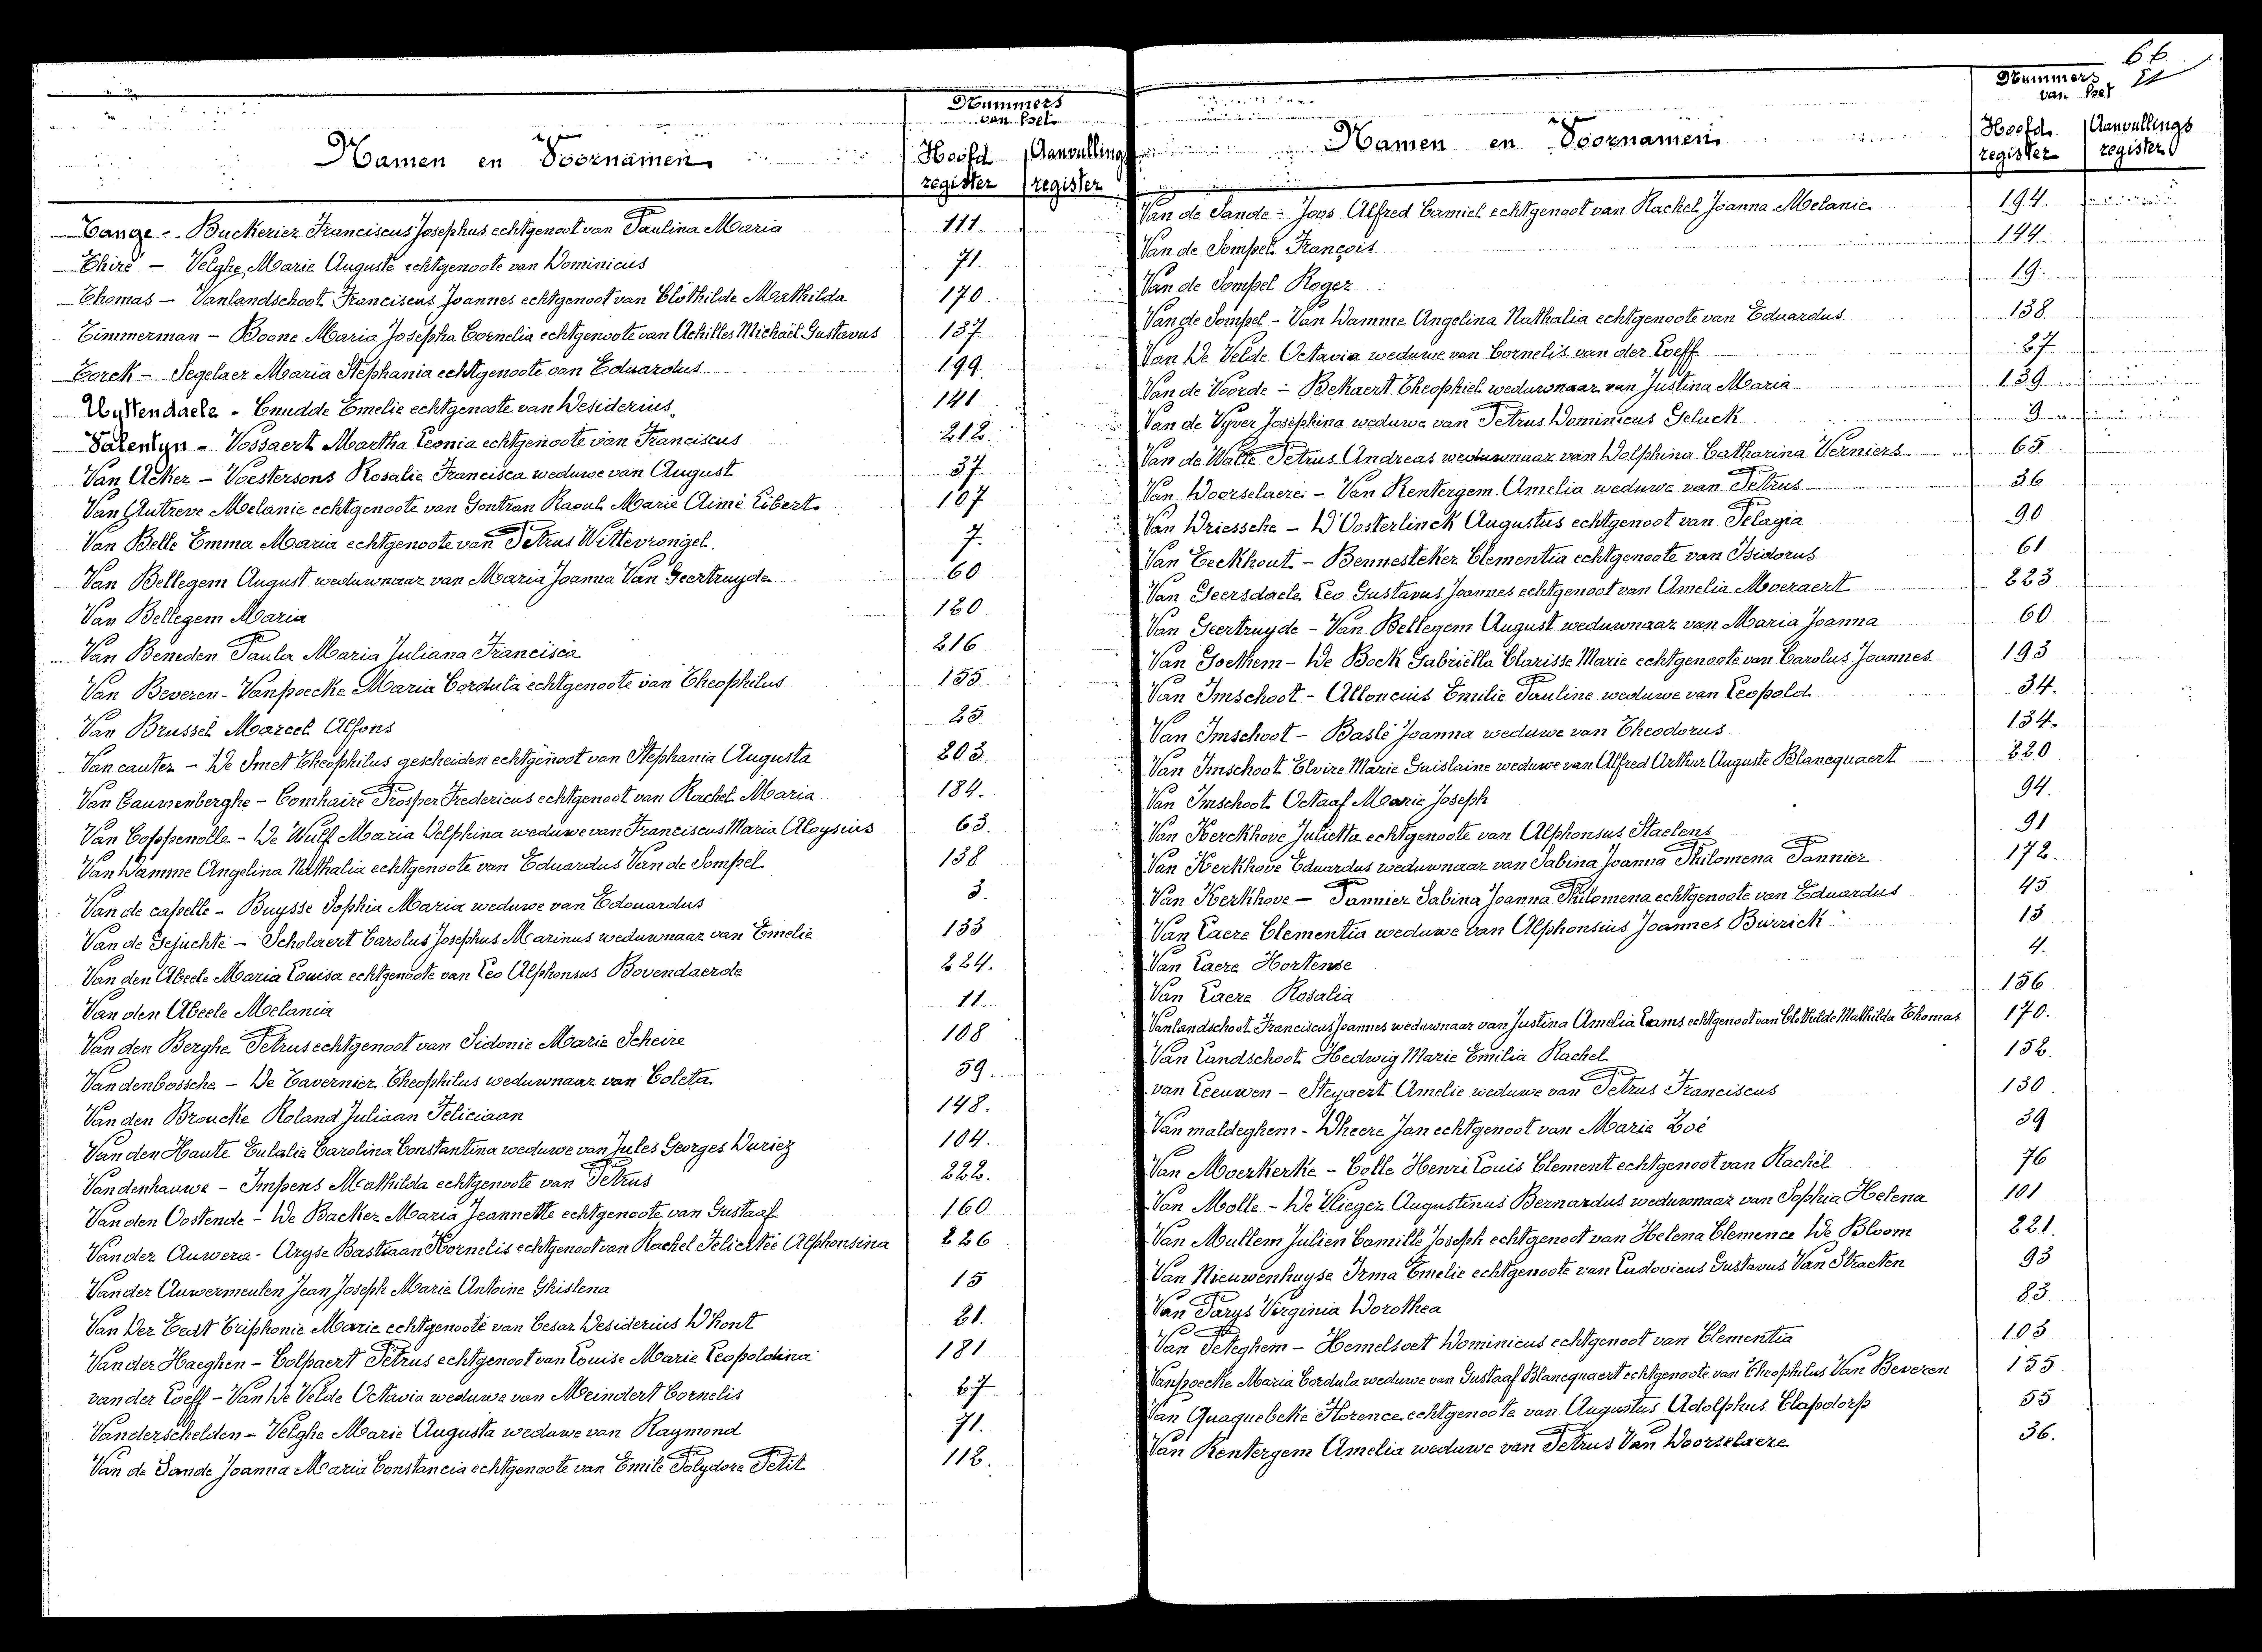 Nummers
van het
Namen en Voornamen
Hoofd register
Aanvullings register
Tange - Buckeriez Franciscus Josephus echtgenoot van Paulina Maria 111.
Thiré - Velghe Marie Auguste echtgenoote van Dominicus 71.
Thomas - Vanlandschoot Franciscus Joannes echtgenoot van Clothilde Mathilda 170.
Timmerman - Boone Maria Josepha Cornelia echtgenoote van Achilles Michaël Gustavus 137.
Torck - Segelaer Maria Stephania echtgenoote van Eduardus 199.
Uyttendaele - Cnudde Emelie echtgenoote van Desiderius 141
Valentyn - Vossaert Martha Leonia echtgenoote van Franciscus 212.
Van Acker - Voestersons Rosalie Francisca weduwe van August 37.
Van Autreve Melanie echtgenoote van Gontran Raoul Marie Aimé Libert 107
Van Belle Emma Maria echtgenoote van Petrus Wittevrongel. 7.
Van Bellegem August weduwnaar van Maria Joanna Van Geertruyde 60
Van Bellegem Maria 120
Van Beneden Paula Maria Juliana Francisca 216
Van Beveren - Vanpoecke Maria Cordula echtgenoote van Theophilus 155
Van Brussel Marcel Alfons 25
Van cauter - De Smet Theophilus gescheiden echtgenoot van Stephania Augusta 203.
Van Cauwenberghe - Comhaire Prosper Fredericus echtgenoot van Rachel Maria 184.
Van Coppenolle - De Wulf Maria Delphina weduwe van Franciscus Maria Aloysius 63.
Van Damme Angelina Nathalia echtgenoote van Eduardus Van de Sompel 138
Van de capelle - Buysse Sophia Maria weduwe van Edouardus 3.
Van de Gejuchte - Scholaert Carolus Josephus Marinus weduwnaar van Emelie 133
Van den Abeele Maria Louisa echtgenoote van Leo Alphonsus Bovendaerde 224.
Van den Abeele Melania 11.
Van den Berghe Petrus echtgenoot van Sidonie Marie Scheire 108
Vandenbossche - De Tavernier Theophilus weduwnaar van Coleta 59.
Van den Broucke Roland Juliaan Feliciaan 148.
Van den Haute Eulalie Carolina Constantina weduwe van Jules Georges Duriez 104.
Vandenhauwe - Impens Mathilda echtgenoote van Petrus 222.
Van den Oostende - De Backer Maria Jeannette echtgenoote van Gustaaf 160
Van der Auwera - Aryse Bastiaan Kornelis echtgenoot van Rachel Felicitée Alphonsina 226
Vander Auwermeulen Jean Joseph Marie Antoine Ghislena 15
Van Der Eecst Triphonie Marie echtgenoote van Cesar Desiderius D'hont 21.
Van der Haeghen - Colpaert Petrus echtgenoot van Louise Marie Leopoldina 181
van der Loeff - Van De Velde Octavia weduwe van Meindert Cornelis 67
Vanderschelden - Velghe Marie Augusta weduwe van Raymond 71.
Van de Sande Joanna Maria Constancia echtgenoote van Emile Polydore Petit 112.
66
Nummers
van het
Namen en Voornamen
Hoofd register
Aanvullings register
Van de Sande - Joos Alfred Camiel echtgenoot van Rachel Joanna Melanie 194.
Van de Sompel François 144.
Van de Sompel Roger 19.
Van de Sompel - Van Damme Angelina Nathalia echtgenoote van Eduardus 138
Van De Velde Octavia weduwe van Cornelis van der Loeff 67
Van de Voorde - Bekaert Theophiel weduwnaar van Justina Maria 139
Van de Vyver Josephina weduwe van Petrus Dominicus Geluck 9
Van de Walle Petrus Andreas weduwnaar van Dolphina Catharina Verniers 65
Van Doorselaere - Van Rentergem Amelia weduwe van Petrus 36
Van Driessche - D'Oosterlinck Augustus echtgenoot van Pelagia 90
Van Eeckhout - Bennesteker Clementia echtgenoote van Isidorus 61
Van Geersdaele Leo Gustavus Joannes echtgenoot van Amelia Moeraert 223
Van Geertruyde - Van Bellegem August weduwnaar van Maria Joanna 60
Van Goethem - De Bock Gabriëlla Clarisse Marie echtgenoote van Carolus Joannes 193
Van Imschoot - Alloncius Emilie Pauline weduwe van Leopold 34.
Van Imschoot - Baslé Joanna weduwe van Theodorus 134.
Van Imschoot Elvire Marie Guislaine weduwe van Alfred Arthur Auguste Blancquaert 220
Van Imschoot Octaaf Marie Joseph 94.
Van Kerckhove Julietta echtgenoote van Alphonsus Staelens 91
Van Kerkhove Eduardus weduwnaar van Sabina Joanna Philomena Pannier 172.
Van Kerkhove - Pannier Sabina Joanna Philomena echtgenoote van Eduardus 45
Van Laere Clementia weduwe van Alphonsius Joannes Burrick 13
Van Laere Hortense 4.
Van Laere Rosalia 156
Vanlandschoot Franciscus Joannes weduwnaar van Justina Amelia Lams echtgenoot van Clothilde Mathilda Thomas 170.
Van Landschoot Hedwig Marie Emilia Rachel 152.
van Leeuwen - Steyaert Amelie weduwe van Petrus Franciscus 130
Van maldeghem - Dheere Jan echtgenoot van Marie Zoé 39
Van Moerkerke - Colle Henri Louis Clement echtgenoot van Rachël 76
Van Molle - De Vlieger Augustinus Bernardus weduwnaar van Sophia Helena 101
Van Mullem Julien Camille Joseph echtgenoot van Helena Clemence De Bloom 221.
Van Nieuwenhuyse Irma Emelie echtgenoote van Ludovicus Gustavus Van Straeten 93
Van Parys Virginia Dorothea 83
Van Peteghem - Hemelsoet Dominicus echtgenoot van Clementia 103
Vanpoecke Maria Cordula weduwe van Gustaaf Blancquaert echtgenoote van Theophilus Van Beveren 155
Van Quaquebeke Florence echtgenoote van Augustus Adolphus Clapdorp 55
Van Rentergem Amelia weduwe van Petrus Van Doorselaere 36.